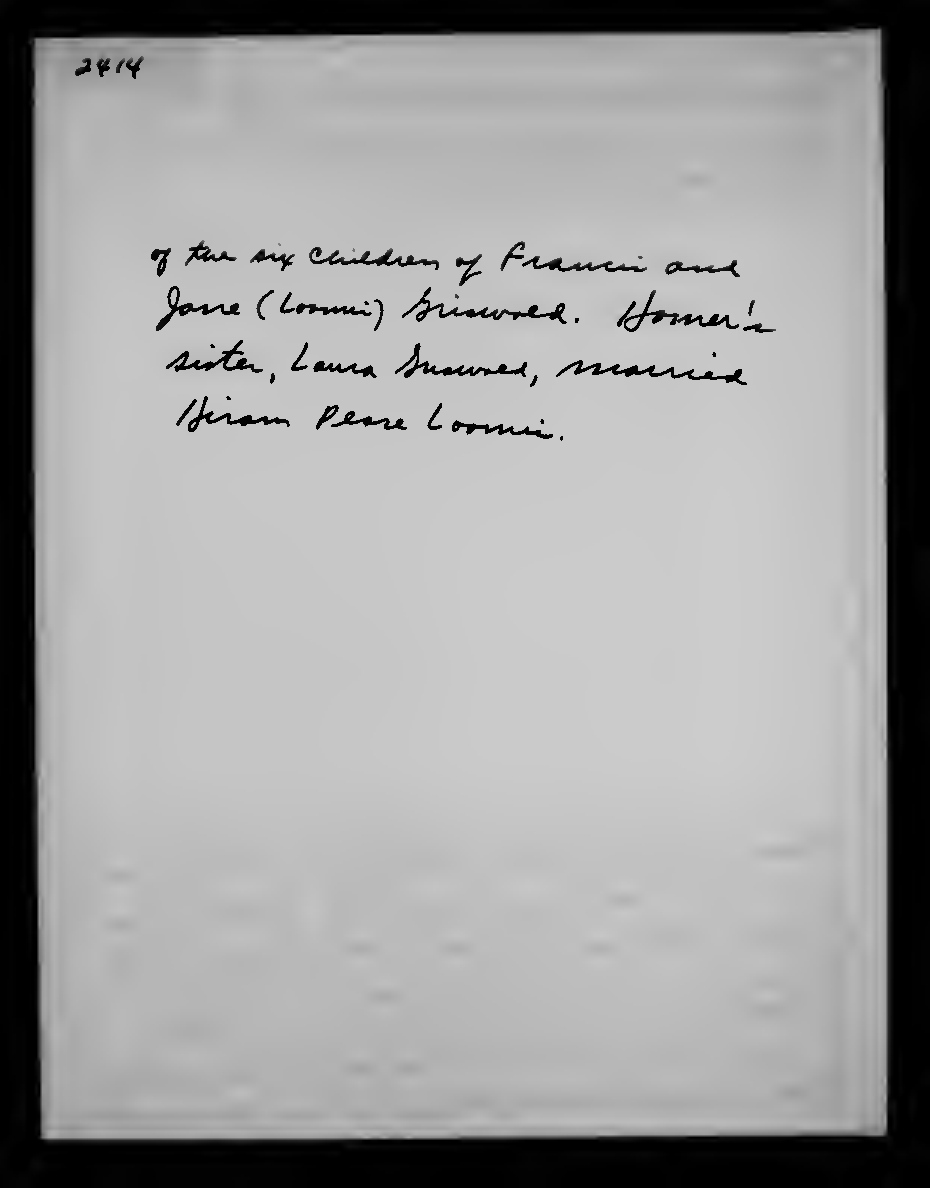 2414
of the six children of Francis and
Jane (Loomis) Griswold. Homer's
sister, Laura Griswold, married
Hiram Pease Loomis.